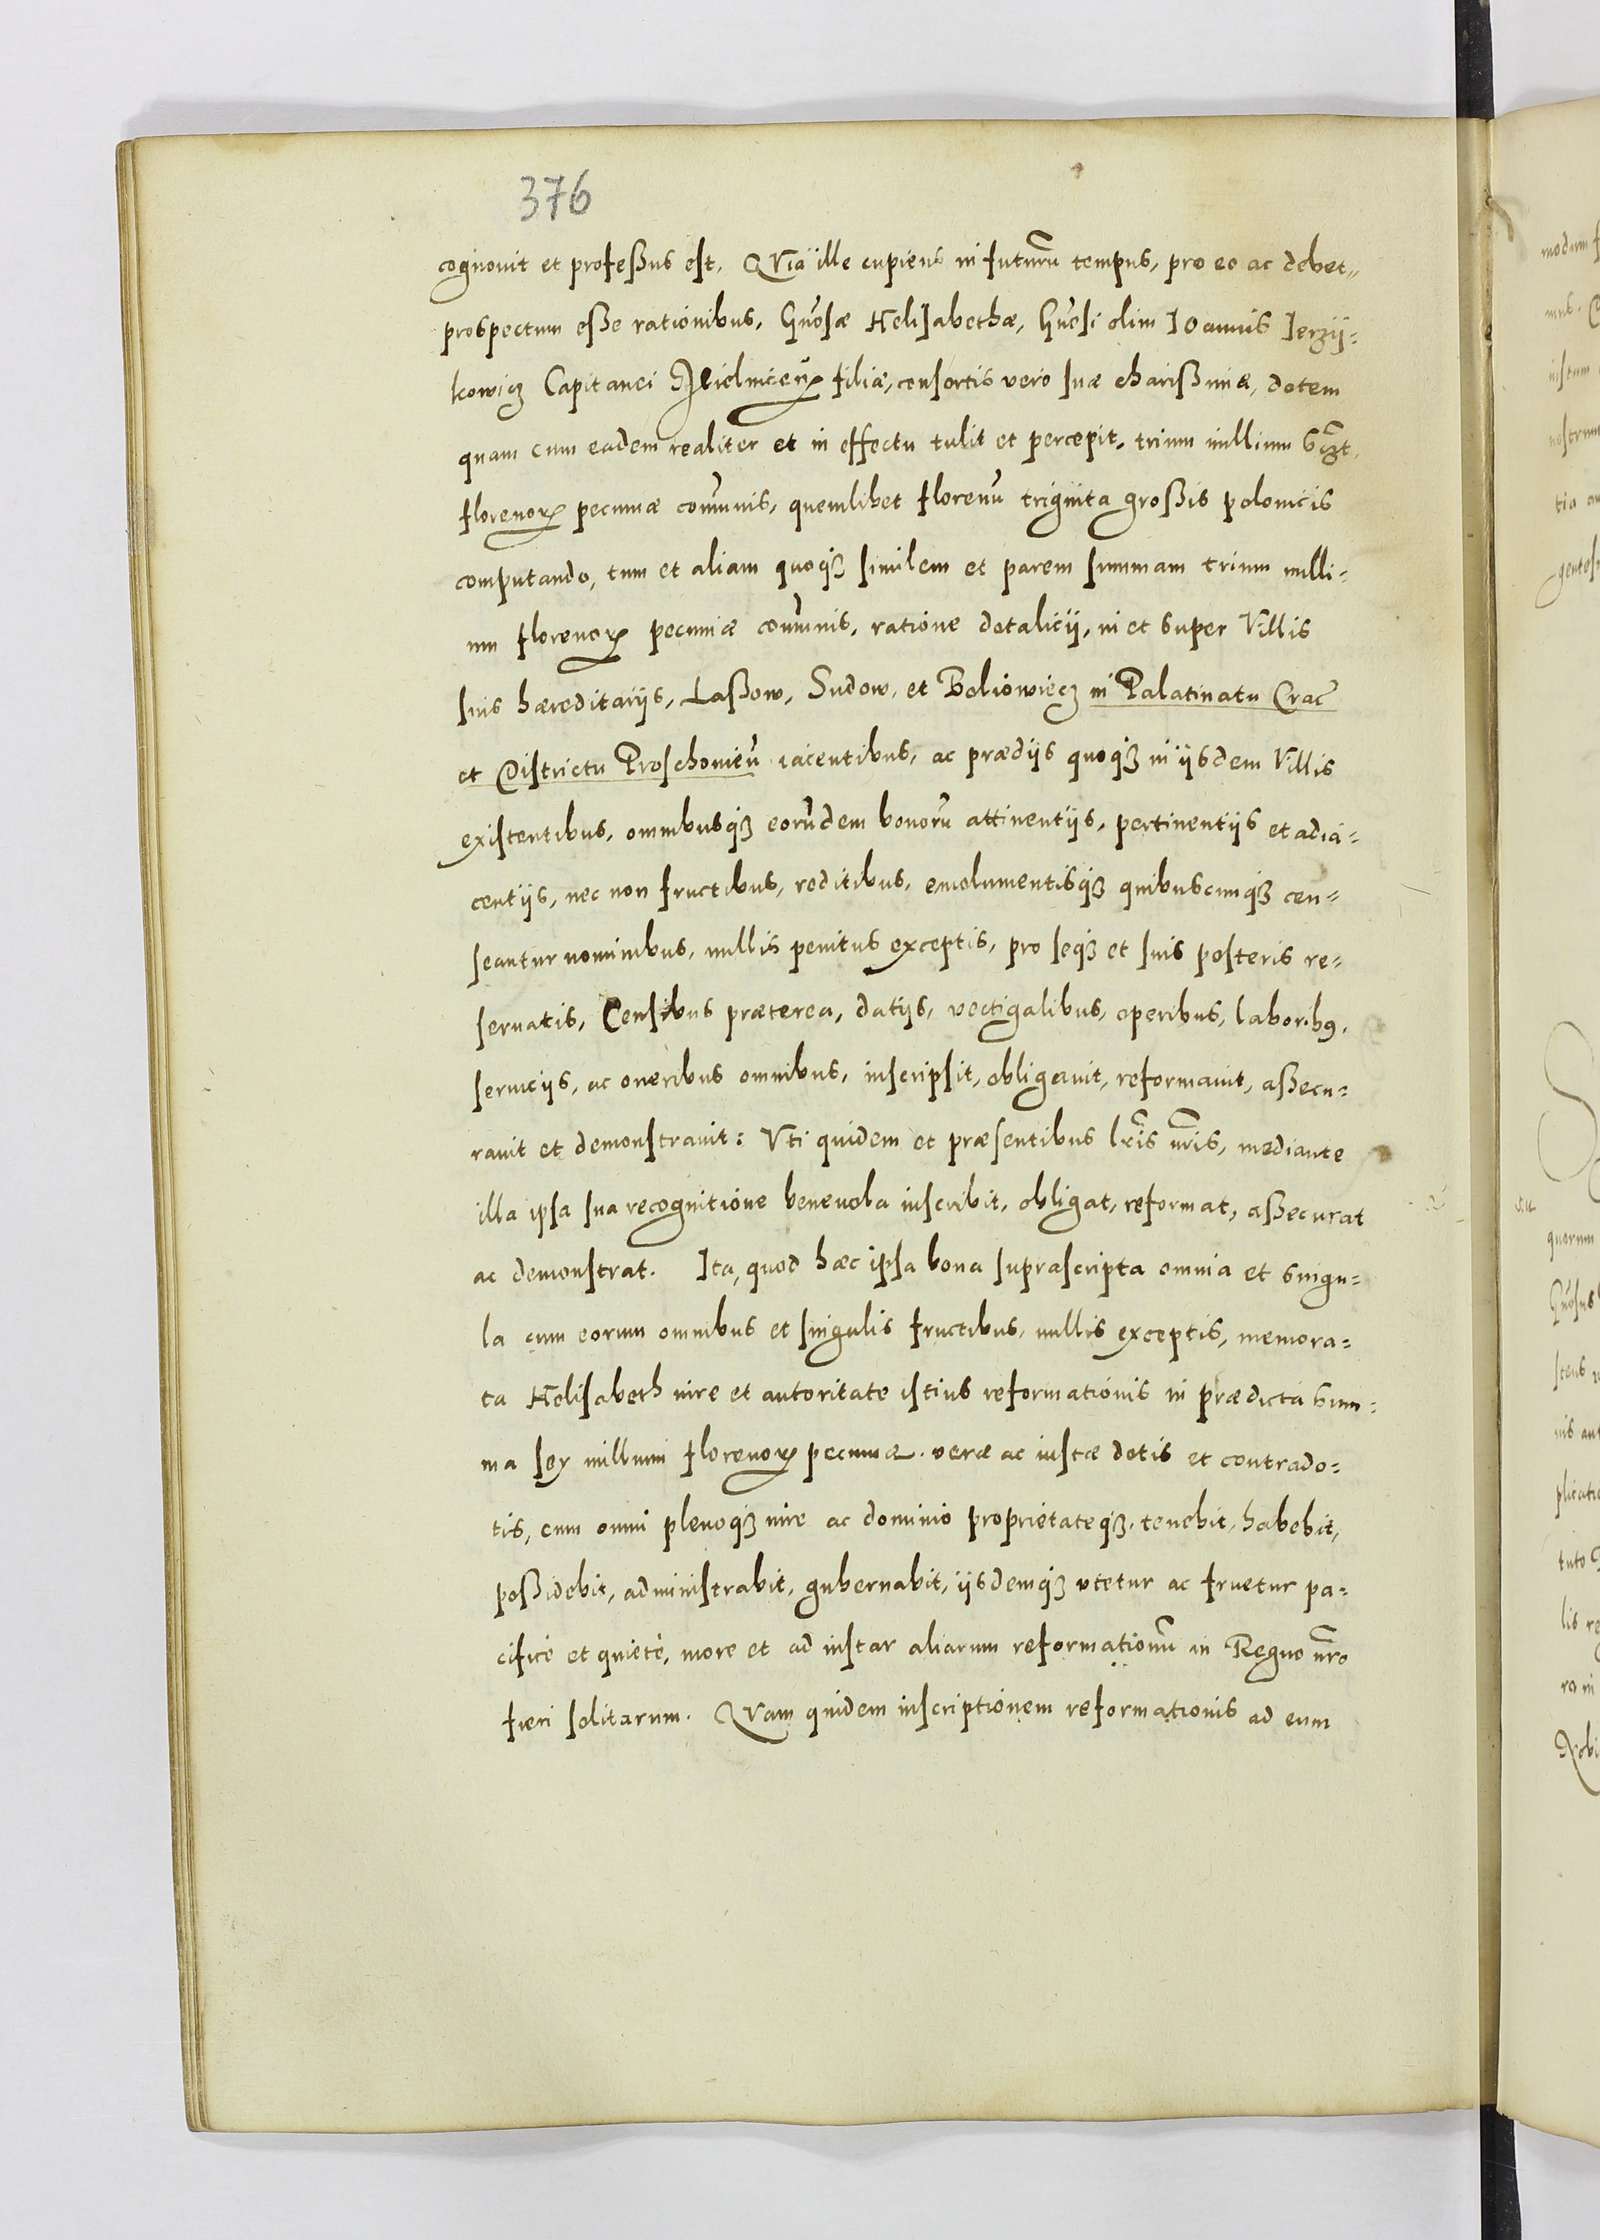 376
cognovit et profeßus est. QVia ille cupiens in futurũ tempus, pro eo ac debet,
prospectum eße rationibus, Gñosæ Helisabethæ, Gñosi olim Ioannis Ierzÿ-
kowicz Capitanei filiæ, consortis vero suæ charißimæ, dotem
quam cum eadem realiter et in effectu tulit et percepit, trium millium
florenorꝝ pecuniæ com̃unis, quemlibet florenũ triginta großis polonicis
computando, tum et aliam quoqꝫ similem et parem summam trium milli-
um florenorꝝ pecuniæ com̃unis, ratione dotalicii, in et super Villis
suis hæreditarijs, Laßow, Sudow, et Boliowiecz in Palatinatu Crac̃
et Districtu Proschouicñ iacentibus, ac prædijs quoqꝫ in ijsdem Villis
existentibus, omnibusqꝫ eorũdem bonorũ attinentijs, pertinentijs et adia-
centijs, nec non fructibus, reditibus, emolumentisqꝫ quibuscunqꝫ cen-
seantur nominibus, nullis penitus exceptis, pro seqꝫ et suis posteris re-
seruatis, Censibus præterea, datijs, vectigalibus, operibus, laboribꝰ,
seruicijs, ac oneribus omnibus, inscripsit, obligauit, reformauit, aßecu-
rauit et demonstrauit: Vti quidem et præsentibus lr̃is nr̃is, mediante
illa ipsa sua recognitione beneuola inscribit, obligat, reformat, aßecurat
ac demonstrat. Ita, quod hæc ipsa bona suprascripta omnia et singu-
la cum eorum omnibus et singulis fructibus, nullis exceptis, memora-
ta Helisabeth iure et autoritate istius reformationis in prædicta sum-
ma sex millium florenorꝝ pecuniæ, veræ ac iustæ dotis et contrado-
tis, cum omni plenoqꝫ iure ac dominio proprietateqꝫ, tenebit, habebit,
poßidebit, administrabit, gubernabit, ijsdemqꝫ vtetur ac fruetur pa-
cificè et quietè, more et ad instar aliarum reformationũ in Regno nr̃o
fieri solitarum. QVam quidem inscriptionem reformationis ad eum